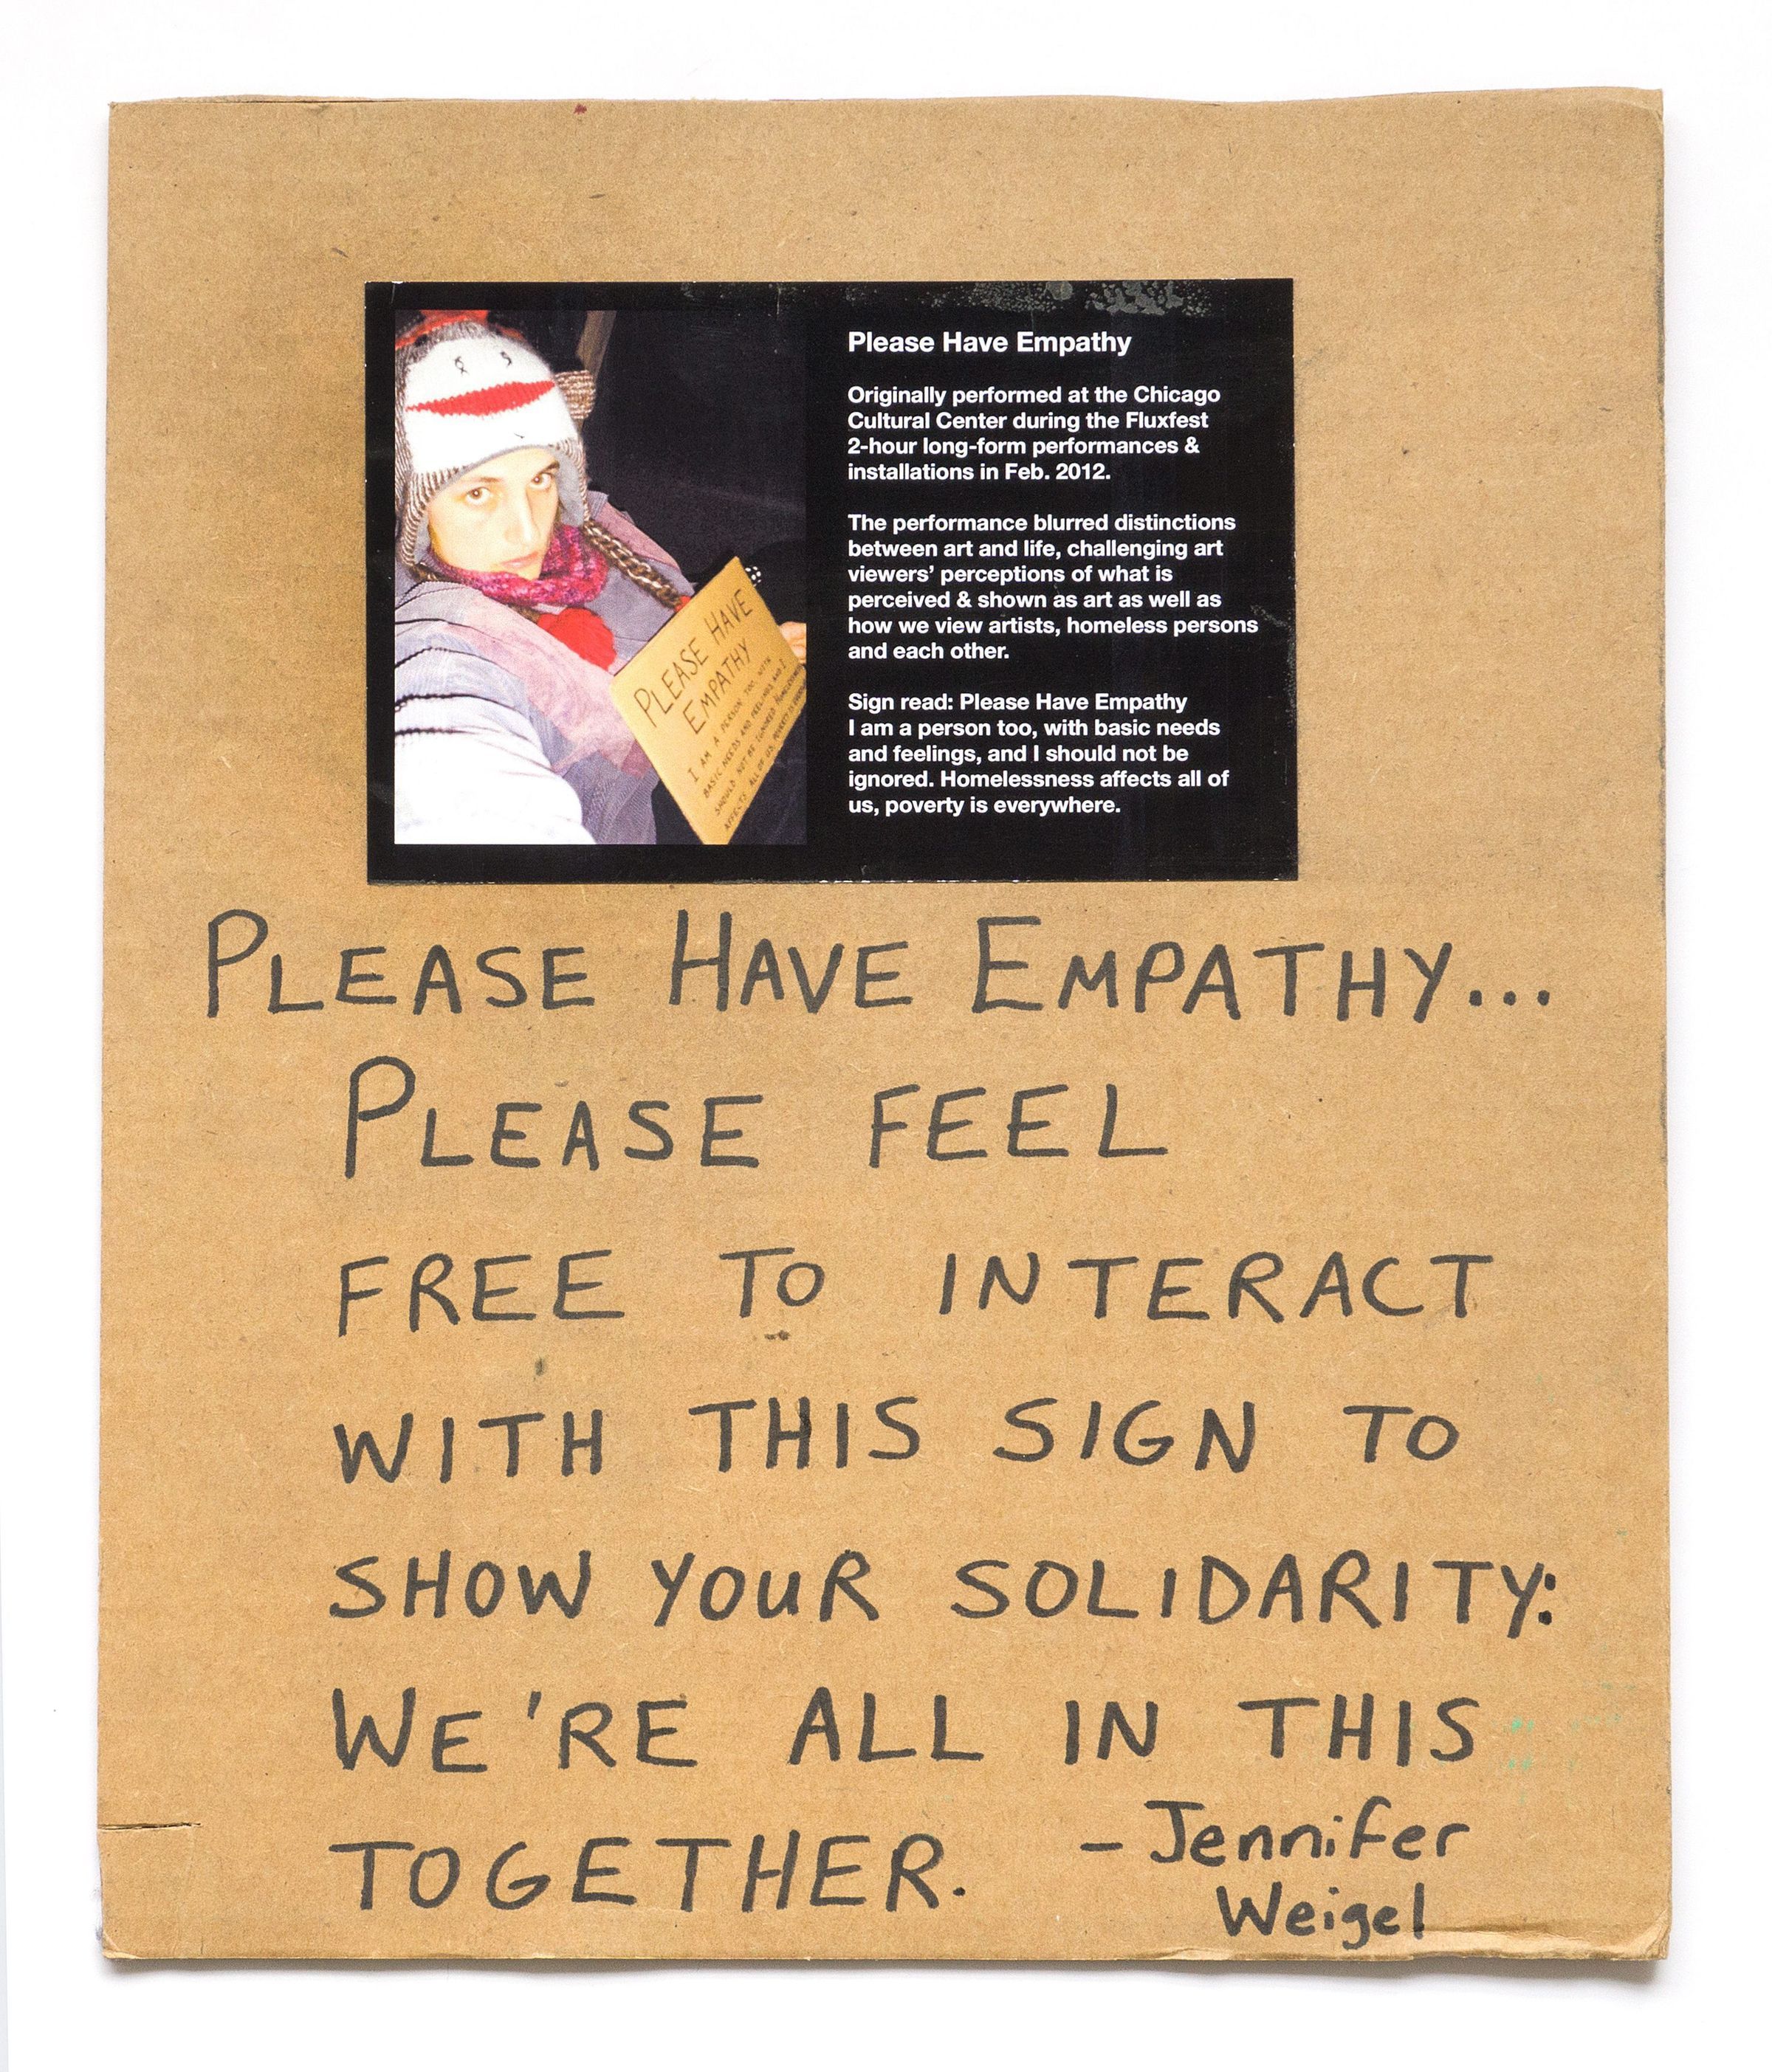 Please Have Empathy
Originally performed at the Chicago
Cultural Center during the Fluxfest
2-hour long-form performances &
installations in Feb. 2012.
The performance blurred distinctions
between art and life, challenging art
viewers’ perceptions of what is
perceived & shown as art as well as
how we view artists, homeless persons
and each other.
Sign read: Please Have Empathy
I am a person too, with basic needs
and feelings, and I should not be
ignored. Homelessness affects all of
us, poverty is everywhere.
PLEASE HAVE
EMPATHY
I AM A PERSON TOO, WITH
BASIC NEEDS AND FEELINGS, AND I
SHOULD NOT BE IGNORED. HOMELESSNESS
AFFECTS ALL OF US, POVERTY IS
PLEASE HAVE EMPATHY...
PLEASE FEEL
FREE TO INTERACT
WITH THIS SIGN TO
SHOW YOUR SOLIDARITY:
WE'RE ALL IN THIS
TOGETHER. – Jennifer
Weigel